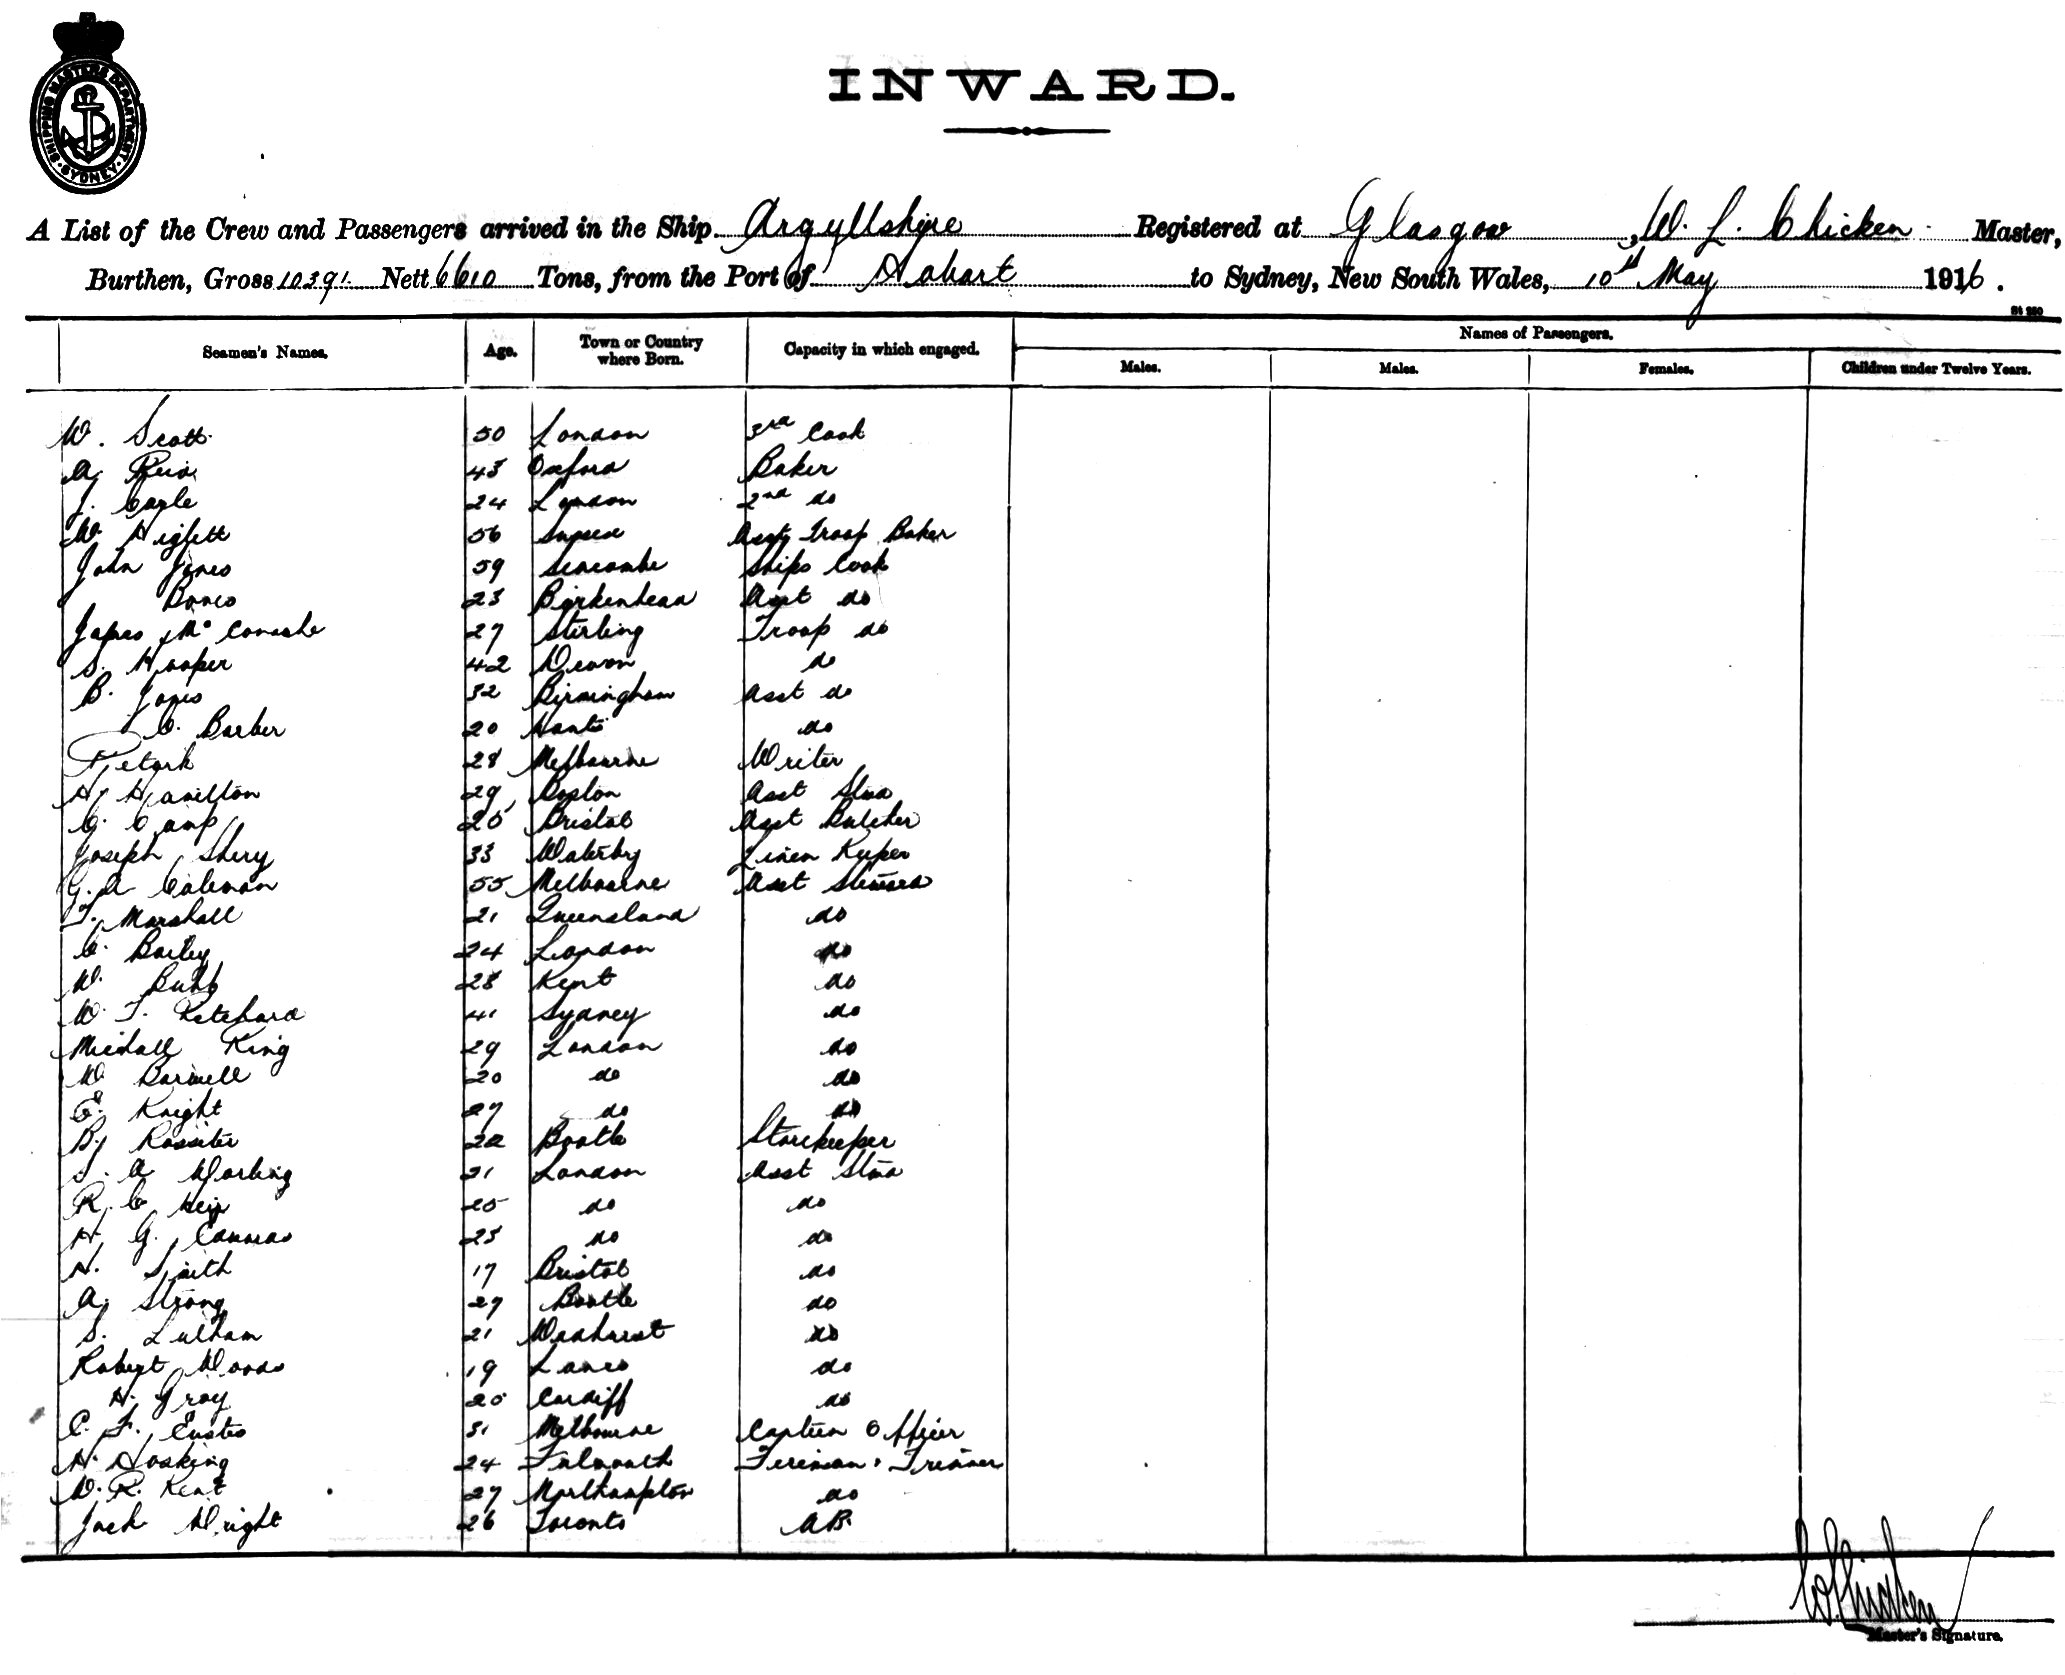 SHIPPING MASTERS DEPARTMENT. SYDNEY
INWARD.
A List of the Crew and Passengers arrived in the Ship Argyllshire Registered at Glasgow, W. L. Chicken Master,
Burthen, Gross 10391 Nett 6610 Tons, from the Port of Hobart to Sydney, New South Wales, 10th May 1916.
Seamen's Names. Age. Town or Country where Born. Capacity in which engaged. Names of Passengers.
Males. Males. Females. Children under Twelve Years.
W. Scott 50 London 3rd Cook
A. Reid 43 Oxford Baker
J. Cagle 24 London 2nd do
W. Higlett 56 Sussex Asst Troop Baker
John Jones 59 Seacombe Ships Cook
23 Birkenhead Asst do
James 27 Stirling Troop do
S. Hooper 42 Devon do
B. Jones 32 Birmingham Asst do
C. Barber 20 Hants do
28 Melbourne Writer
H. Hamilton 29 Boston Asst Stwd
C. Camp Bristol Asst Butcher
Joseph 33 Linen Keeper
G. A Coleman 55 Melbourne Asst Steward
T. Marshall 21 Queensland do
C. Bailey 24 London do
W. Bubb 28 Kent do
W. T. Pritchard 41 Sydney do
King 29 London do
W. Barwell 20 do do
E. Knight 27 do do
B. Rossiter Bootle Storekeeper
S. A 21 London Asst Stwd
R. C 25 do do
H. G. 23 do do
H. Smith 17 Bristol do
A. Strong 27 Bootle do
S. Lulham 21 Wadhurst do
Robert Woods 19 Lancs do
H. Gray 20 Cardiff do
C. F. Eustes 31 Melbourne Canteen Officer
H. Hosking 24 Falmouth Fireman & Trimmer
W. R. Kent 27 Northampton do
Jack Wright 26 Toronto AB.
W. L. Chicken
Master's Signature.